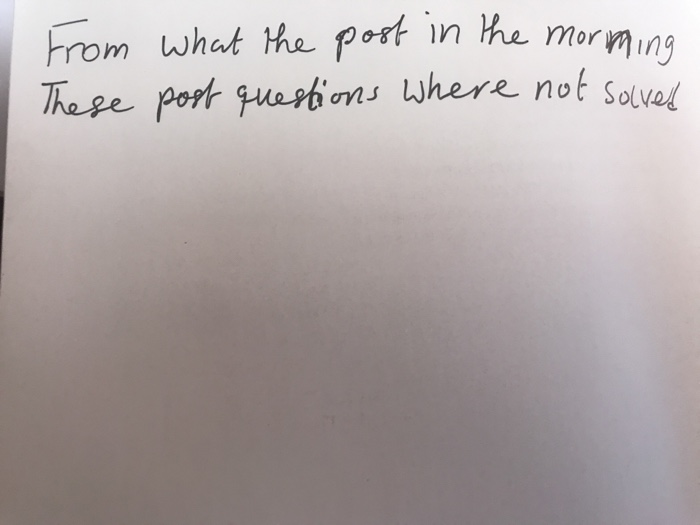 From what the post in the morning
These post questions where not solved